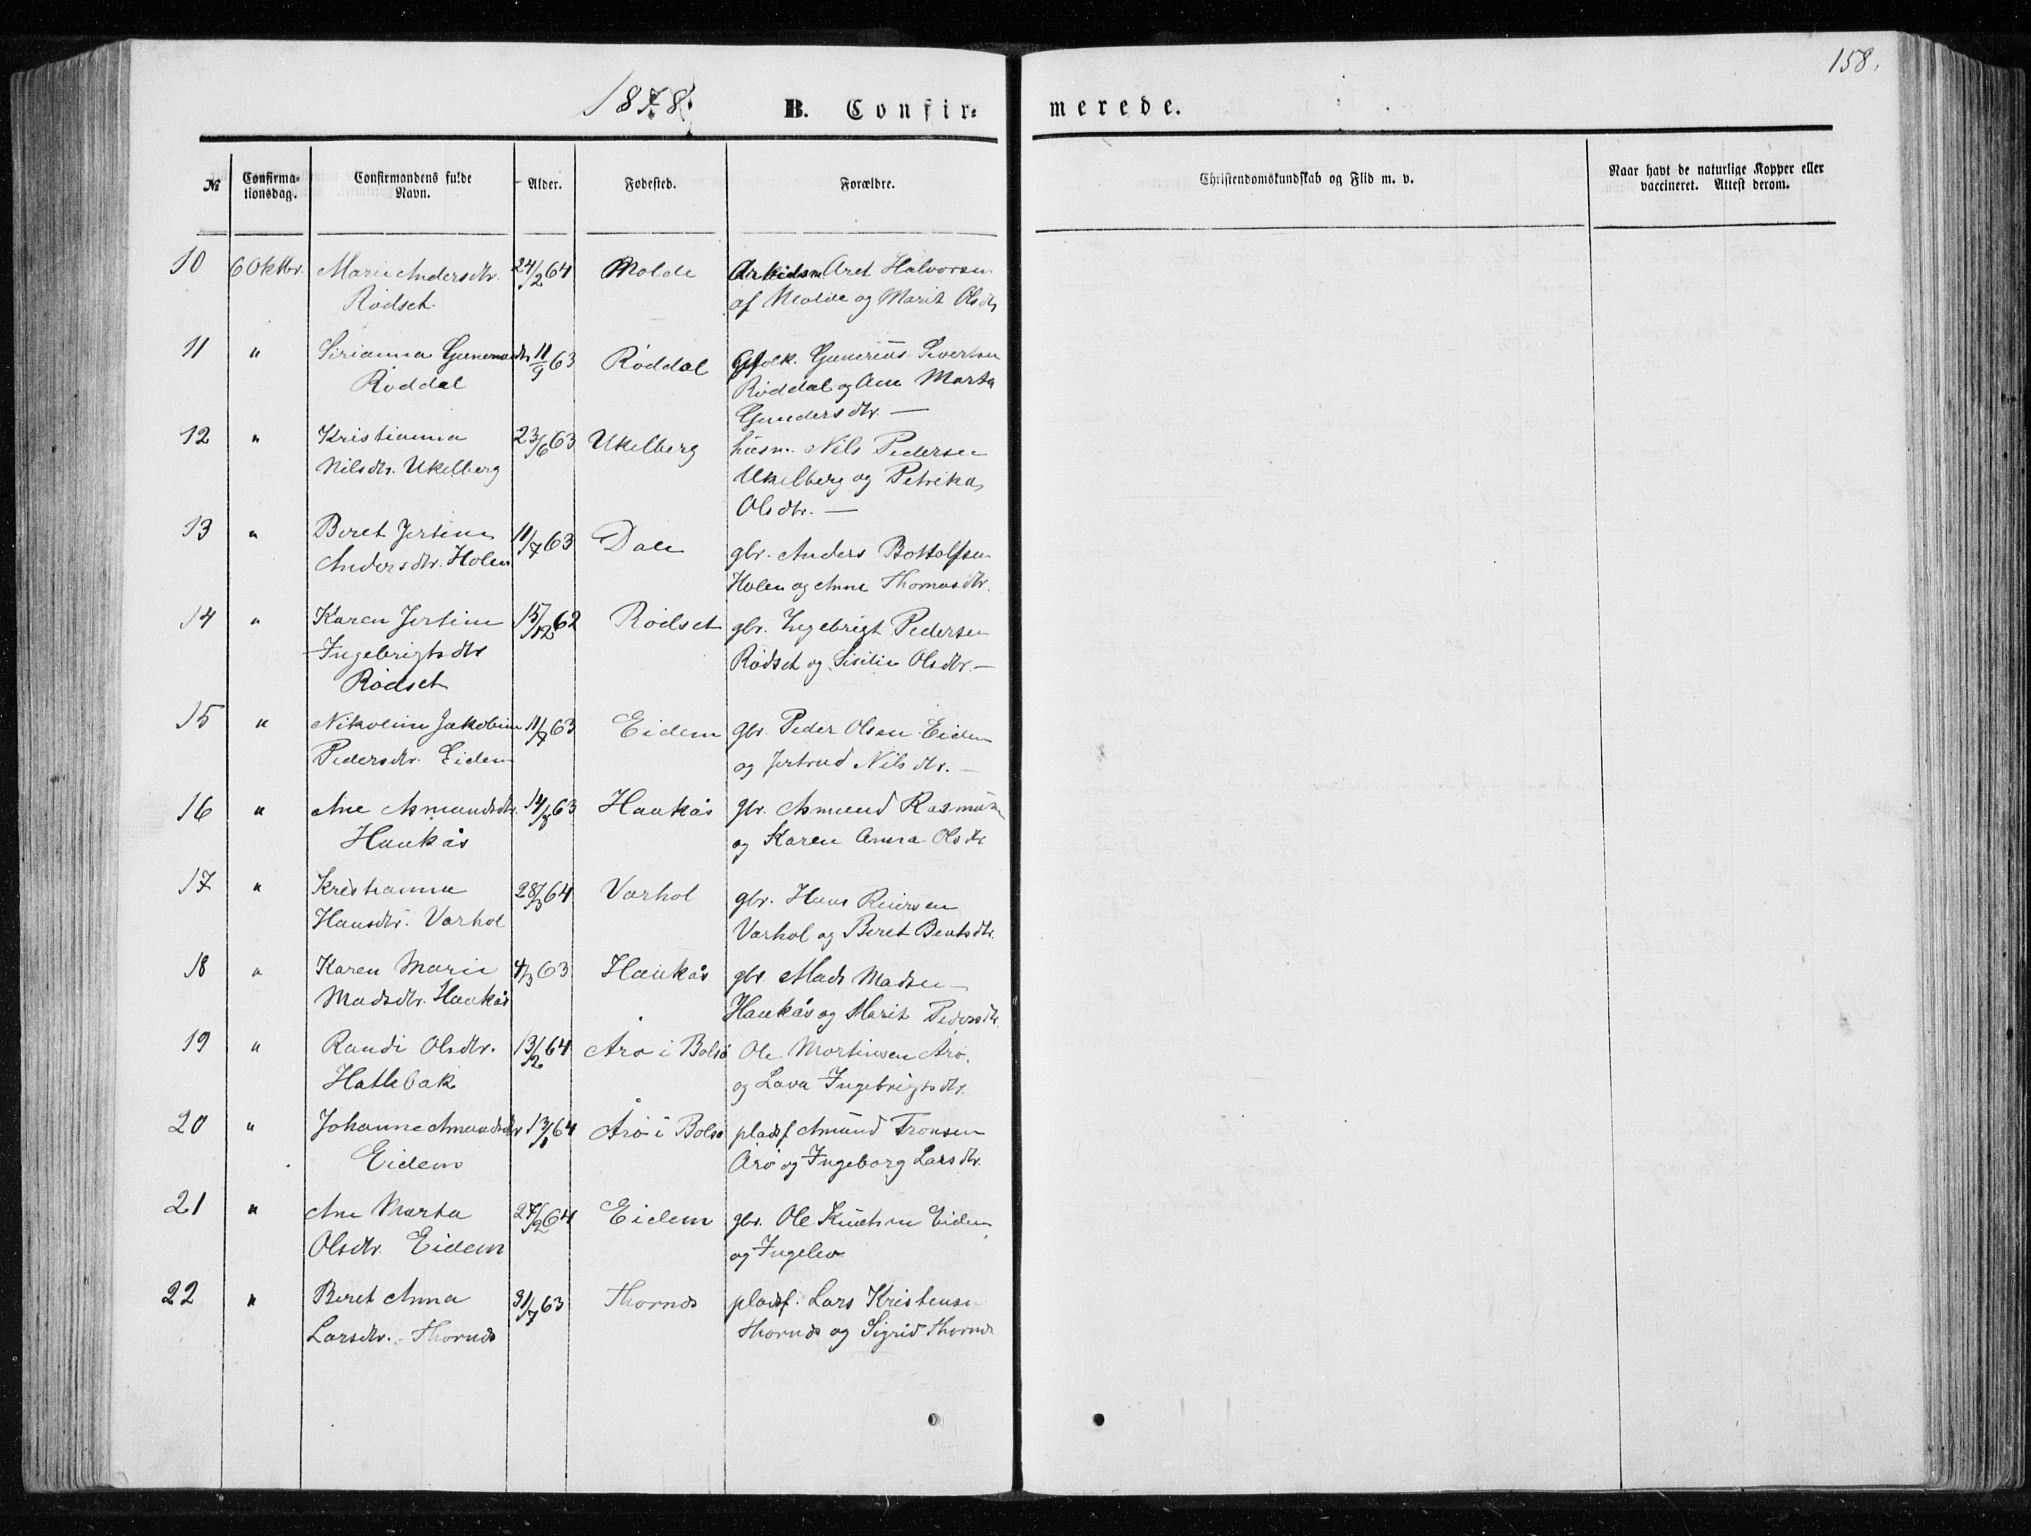 158.
1878.
B. Confir-
merede.
№
Confirma-
tionsdag.
Confirmandens fulde
Navn.
Alder.
Fødested.
Forældre.
Christendomskundskab og Flid m. v.
Naar havt de naturlige Kopper eller
vaccineret. Attest derom.
10 6 Oktbr. Marie Andersdtr. 24/2 64 Molde Arbeidsm Aret Halvorsen
Rødset af Molde og Marit Olsdtr
11 " Sirianna Gunerusdtr 11/9 63 Røddal Gfolk. Gunerius Sivertsen
Røddal Røddal og Ane Marta
Gundersdtr. —
12 " Kristianna 23/6 63 Ukelberg husm. Nils Pedersen
Nilsdtr. Ukelberg Ukelberg og Petrika
Olsdtr. —
13 " Beret Jertine 11/7 63 Dale gbr. Anders Bottolfsen
Andersdtr. Holen Holen og Anne Thomasdtr.
14 " Karen Jertine 15/12 62 Rødset gbr. Ingebrigt Pedersen
Ingebrigtsdtr Rødset og Sisilie Olsdtr. —
Rødset
15 " Nikoline Jakobine 11/7 63 Eidem gbr. Peder Olsen Eidem
Pedersdtr. Eidem og Jertrud Nilsdtr. —
16 " Ane Asmundsdtr. 14/8 63 Haukås gbr. Asmund Rasmusen
Haukås og Karen Anna Olsdtr
17 " Kristianna 28/3 64 Varhol gbr. Hans Reiersen
Hansdtr. Varhol Varhol og Beret Bentsdtr.
18 " Karen Marie 4/3 63 Haukås gbr. Mads Madsen
Madsdtr. Haukås Haukås og Marit Pedersdtr.
19 " Randi Olsdtr. 13/2 64 Årø i Bolsø Ole Mortinsen Årø
Hatlebak og Lava Ingebrigtsdtr.
20 " Johanne Amundsdtr 13/1 64 Årø i Bolsø pladsf Amund Tronsen
Eidem Årø og Ingeborg Larsdtr.
21 " Ane Marta 27/2 64 Eidem gbr. Ole Knutsen Eidem
Olsdtr. Eidem og Ingelev
22 " Beret Anna 31/7 63 Thornds pladsf. Lars Kristensen
Larsdtr. Thornds Thornds og Sigrid Thornds